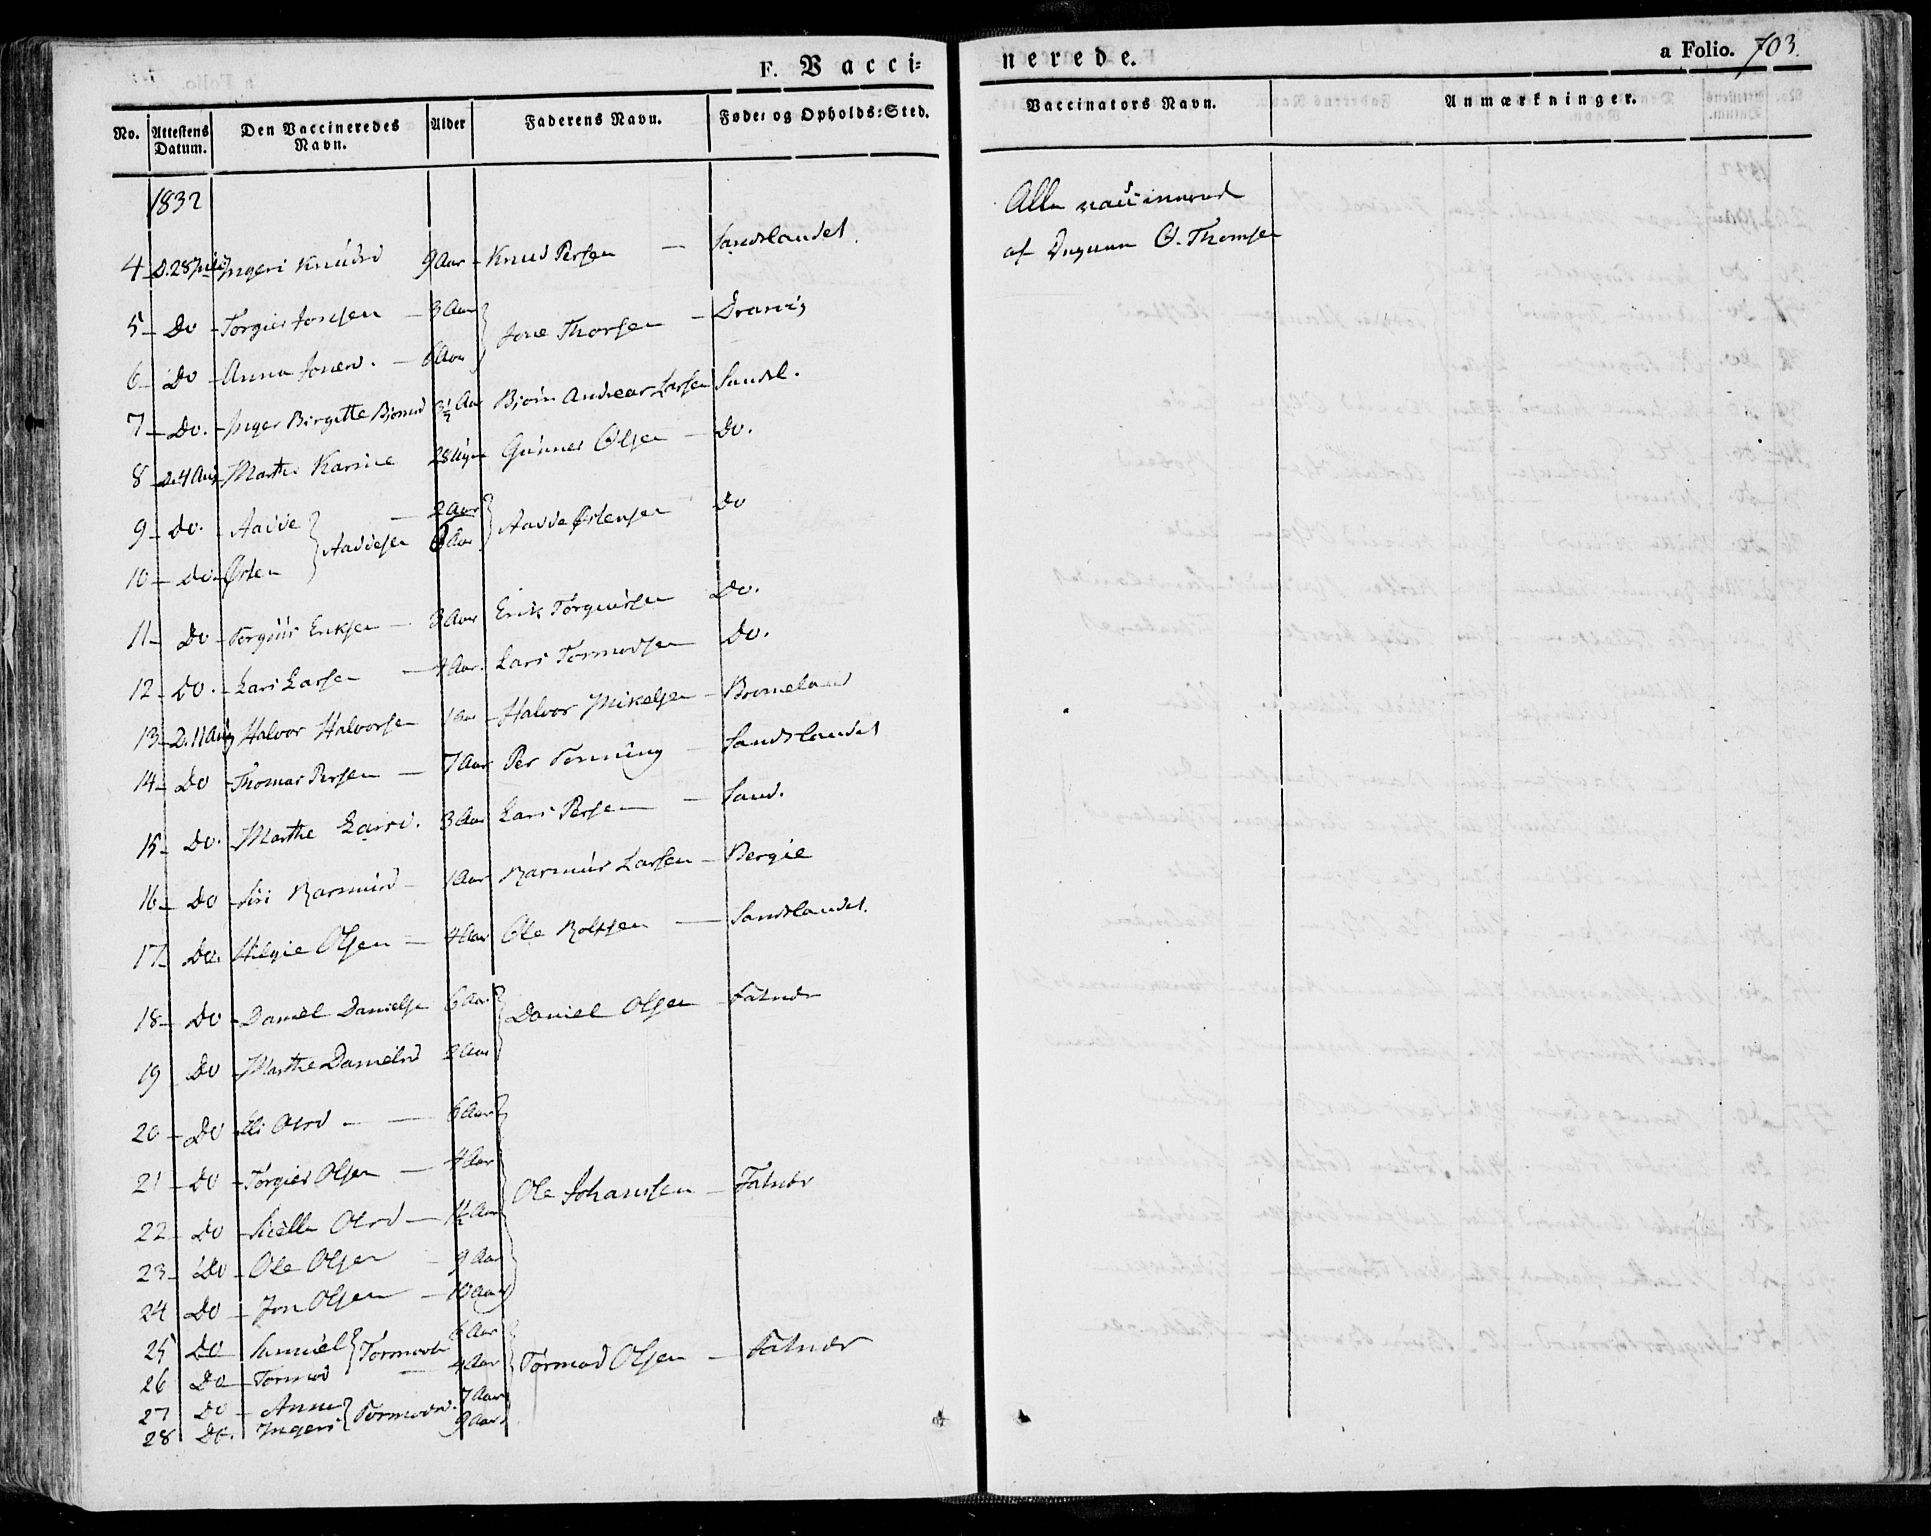 F. Vacci=
nerede.
a Folio. 703.
No. Attestens Datum. Den Vaccineredes Navn. Alder Faderens Navn. Føde= og Opholds=Sted. Vaccinators Navn. Anmærkninger.
1832
Alle vaccinered
af O. Thomsen
4 D. 28 Ingeri Knudsd 9 Aar Knud Persen — Sandslandet.
5 Do Torgier Jonsen — 3 Aar Jone Thorsen —
6 Do Anna Jonsd. — 6 Aar
7 Do. Inger Birgitte Bjornsd 3½ Aar Bjørn Andreas Larsen Sandsl.
8 D. 4 Aug Marthe Karine 28 Uger Gunner Olsen — Do.
9 Do. Aadde } Aaddesen — 2 Aar Aadde Østensen Do
10 Do Østen 6 Aar
11 Do Torguus Eriksen — 3 Aar Erik Torguusen Do.
12 Do. Lars Larsen — 4 Aar. Lars Tormodsen Do.
13 D. 11 Aug Halvor Halvorsen 1 Aar Halvor Mikelsen — Bromeland
14 Do Thomas Persen — 7 Aar Per Tonning — Sandslandet
15 Do. Marthe Larsd. 3 Aar Lars Persen — Sand.
16 Do Siri Rasmusd — 1 Aar Rasmus Larsen — Bergie
17 Do. Helgie Olsen — 4 Aar Ole Rolfsen — Sandslandet.
18 Do Daniel Danielsen 6 Aar Daniel Olsen — Fatnes
19 Do Marthe Danielsd 2 Aar
20 Do Eli Olsd — 6 Aar
21 Do Torgier Olsen — 4 Aar Ole Johansen — Fatnes
22 Do Sielle Olsd — 1½ Aar
23 Do Ole Olsen — 9 Aar
24 Do Jon Olsen — 10 Aar
25 Do Samuel } Tormods 6 Aar
26 Do Tormod — 4 Aar Tormod Olsen — Fatnes
27 Do Anne } Tormodsd. 7 Aar
28 Do. Ingeri 9 Aar